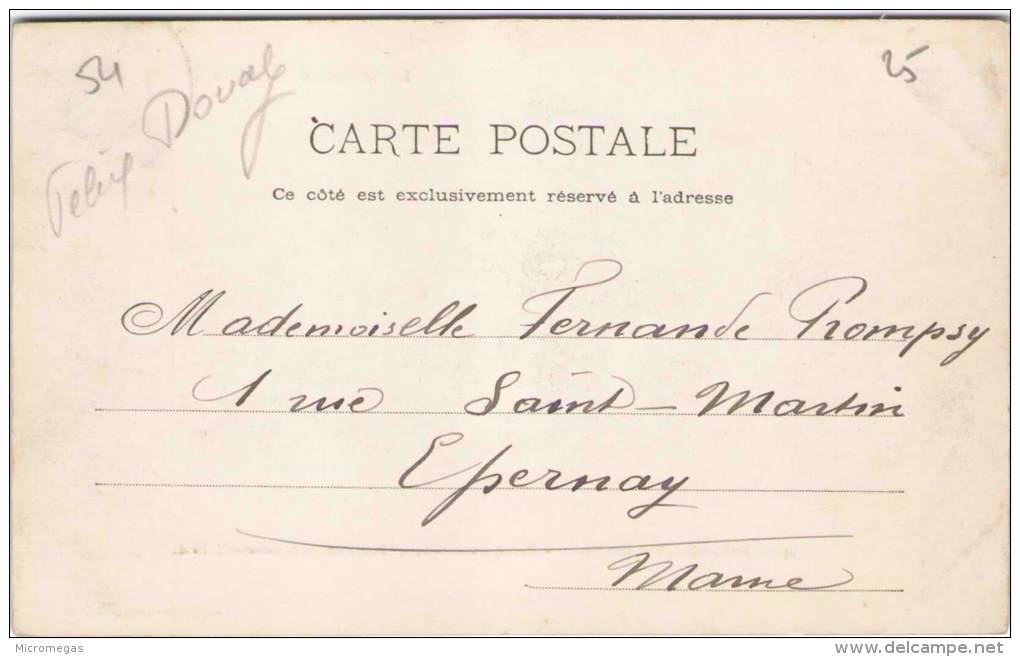 54
25
Felix Douay
CARTE POSTALE
Ce côté est exclusivement réservé à l'adresse
Mademoiselle Fernande Prompsy
1 rue Saint-Martin
Epernay
Marne
Micromegas
www.delcampe.net